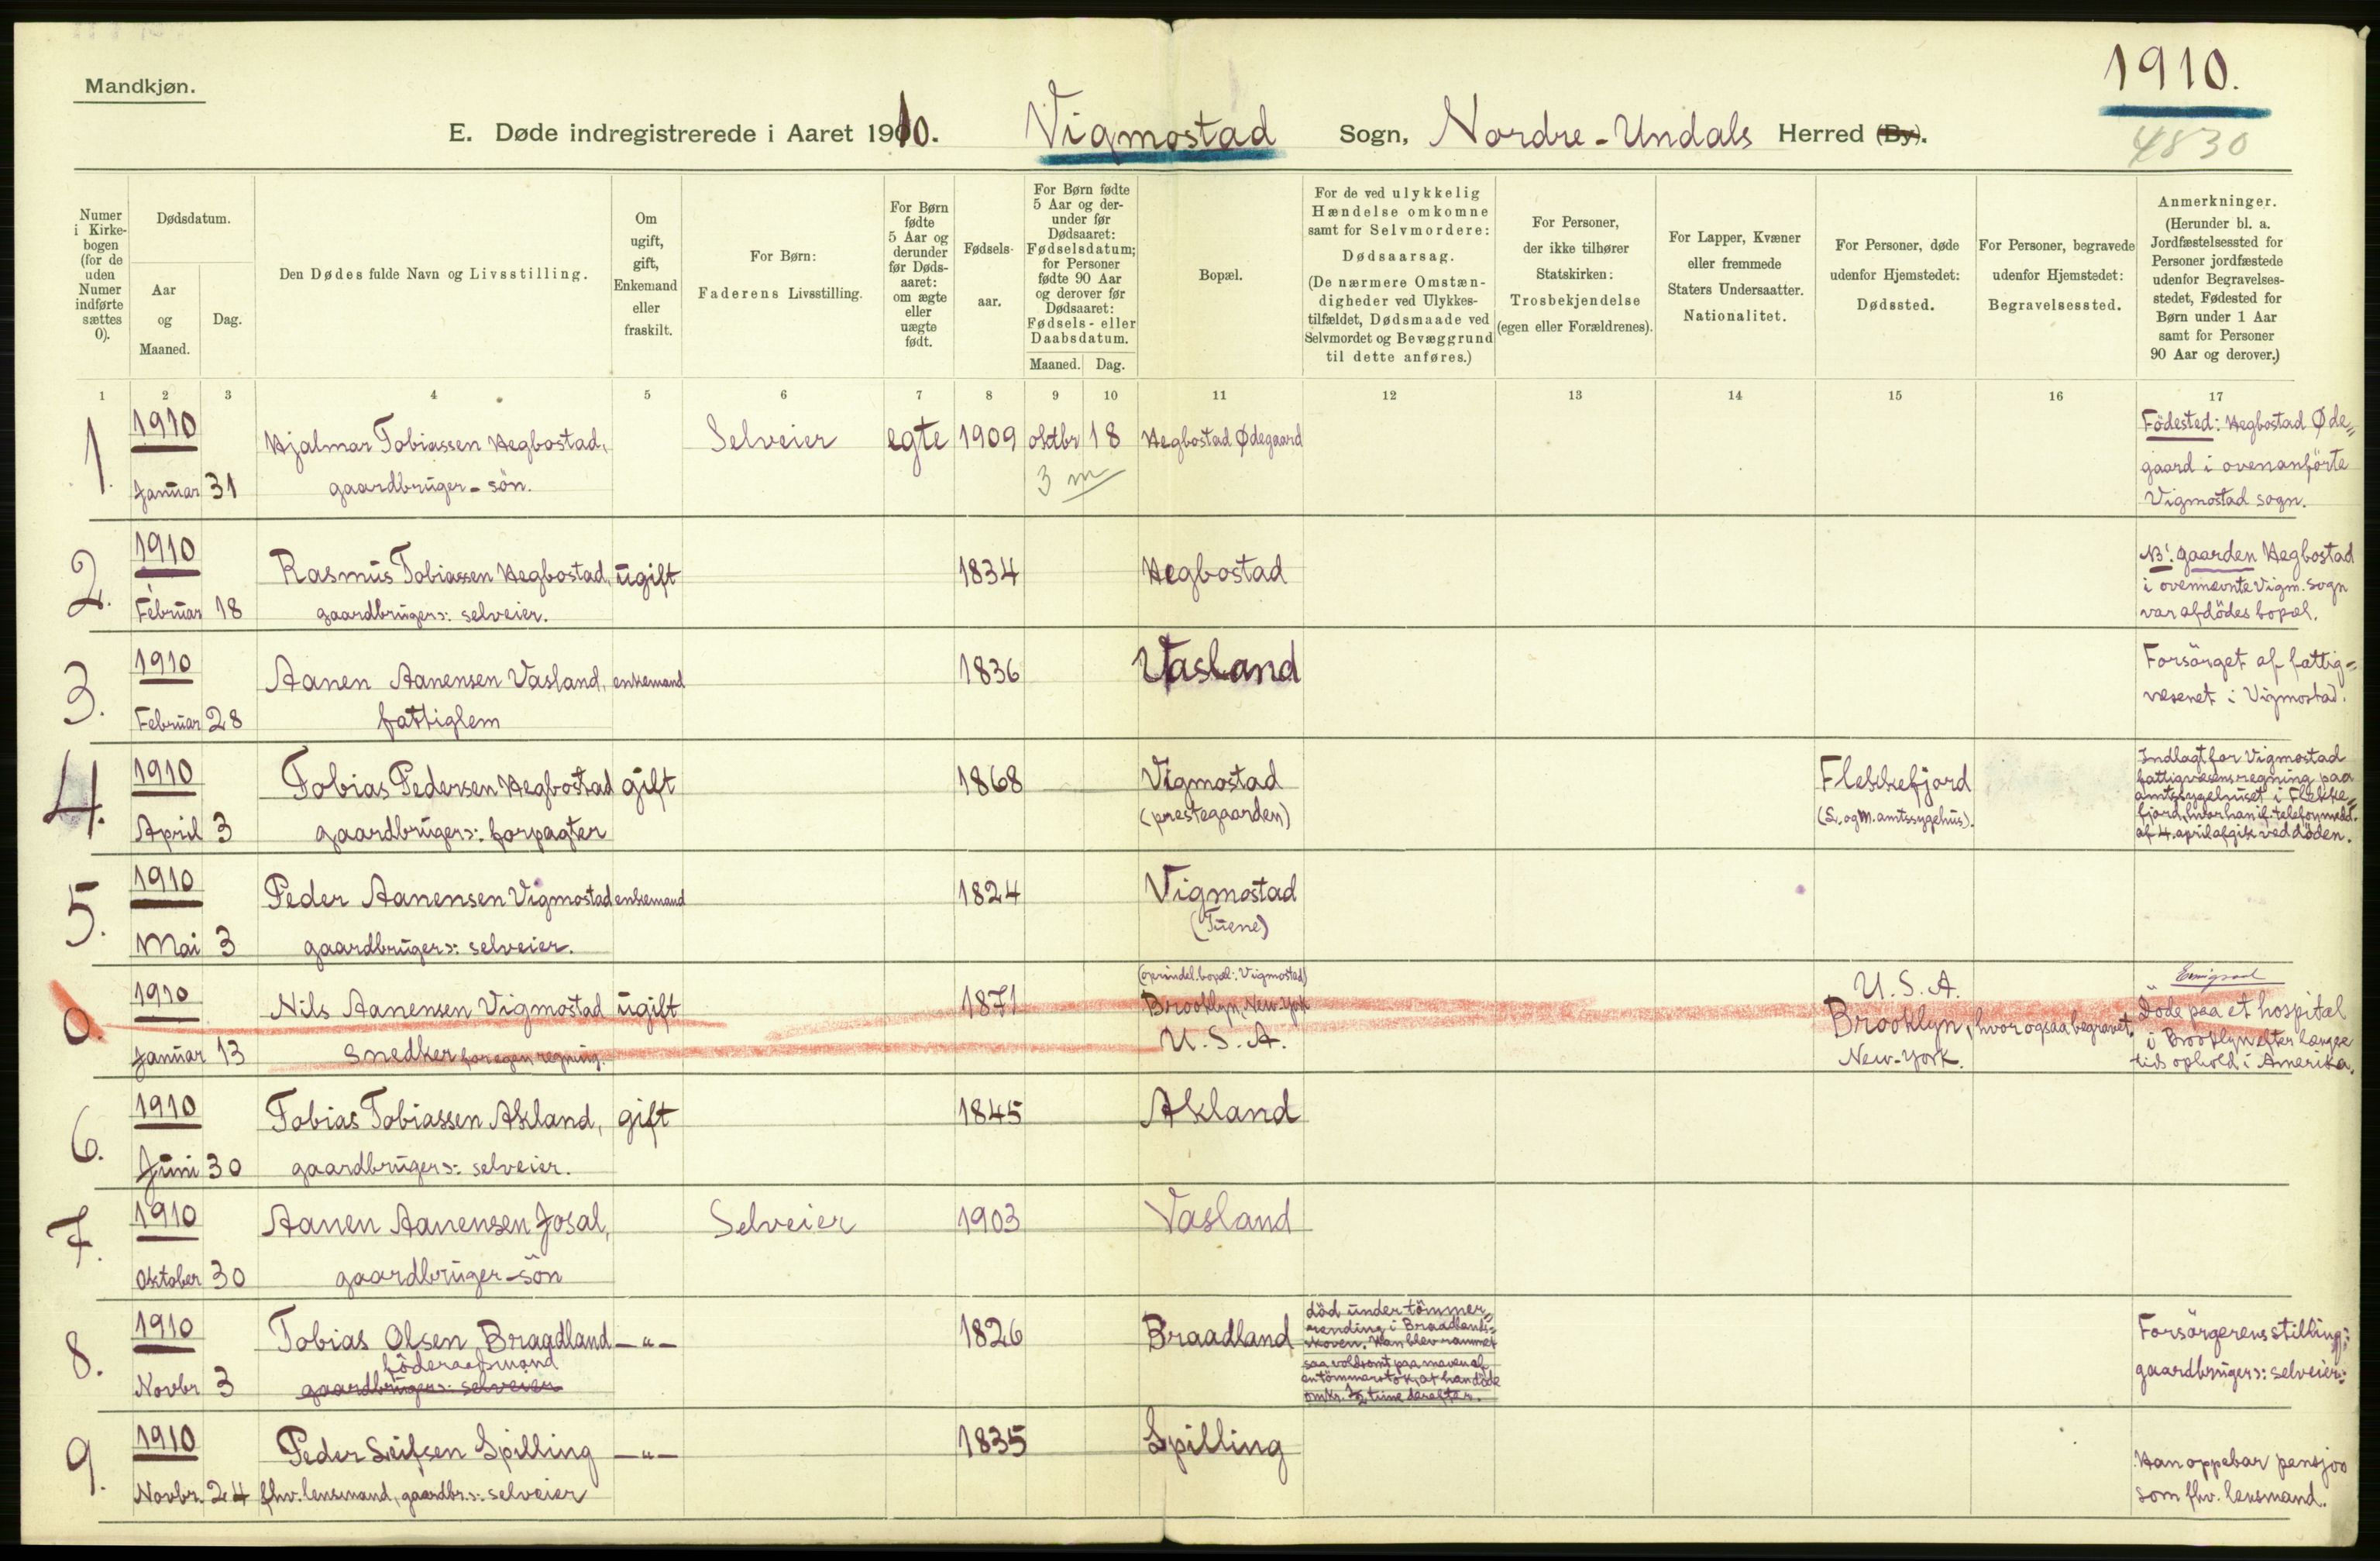 1910.
Mandkjøn.
E. Døde indregistrerede i Aaret 1910. Vigmostad Sogn, Nordre-Undals Herred (By).
4830
Numer
i Kirke-
bogen
(for de
uden
Numer
indførte
sættes
0).
Dødsdatum.
Aar
og
Maaned.
Dag.
Den Dødes fulde Navn og Livsstilling.
Om
ugift,
gift,
Enkemand
eller
fraskilt.
For Børn:
Faderens Livsstilling.
For Børn
fødte
5 Aar og
derunder
før Døds-
aaret:
om ægte
eller
uægte
født.
Fødsels-
aar.
For Børn fødte
5 Aar og der-
under før
Dødsaaret:
Fødselsdatum;
for Personer
fødte 90 Aar
og derover før
Dødsaaret:
Fødsels- eller
Daabsdatum.
Maaned. Dag.
Bopæl.
For de ved ulykkelig
Hændelse omkomne
samt for Selvmordere:
Dødsaarsag.
(De nærmere Omstæn-
digheder ved Ulykkes-
tilfældet, Dødsmaade ved
Selvmordet og Bevæggrund
til dette anføres.)
For Personer,
der ikke tilhører
Statskirken:
Trosbekjendelse
(egen eller Forældrenes).
For Lapper, Kvæner
eller fremmede
Staters Undersaatter.
Nationalitet.
For Personer, døde
udenfor Hjemstedet:
Dødssted.
For Personer, begravede
udenfor Hjemstedet:
Begravelsessted.
Anmerkninger.
(Herunder bl. a.
Jordfæstelsessted for
Personer jordfæstede
udenfor Begravelses-
stedet, Fødested for
Børn under 1 Aar
samt for Personer
90 Aar og derover.)
1 2 3 4 5 6 7 8 9 10 11 12 13 14 15 16 17
1. 1910 Hjalmar Tobiassen Hegbostad, Selveier egte 1909 oktbr 18 Hegbostad Ødegaard
Januar 31 gaardbruger-sön. 3 m
Födested: Hegbostad Øde=
gaard i ovenanförte
Vigmostad sogn.
2. 1910 Rasmus Tobiassen Hegbostad, ugift 1834 Hegbostad
Februar 18 gaardbruger ɔ: selveier.
NB! gaarden Hegbostad
i ovennævnte Vigm. sogn
var afdödes bopæl.
3. 1910 Aanen Aanensen Vasland, enkemand 1836 Vasland
Februar 28 fattiglem
Forsörget af fattig=
væsenet i Vigmostad.
4. 1910 Tobias Pedersen Hegbostad gift 1868 Vigmostad Flekkefjord
April 3 gaardbruger ɔ: forpagter (prestegaarden) (L. og M. amtssygehus).
Indlagt for Vigmostad
fattigvæsens regning paa
amtssygehuset i Flekke=
fjord, hvor han if. telefonmedd.
af 4. april afgik ved döden.
5. 1910 Peder Aanensen Vigmostad enkemand 1824 Vigmostad
(Tuene)
Mai 3 gaardbruger ɔ: selveier.
0. 1910 Nils Aanensen Vigmostad ugift 1871 (oprindel. bopæl: Vigmostad)
Brooklyn, New-York
U. S. A.
Januar 13 Snedker for egen regning.
U. S. A.
Brooklyn, hvor ogsaa begravet.
New-York.
Döde paa et hospital
i Brooklyn efter længre
tids ophold i Amerika.
6. 1910 Tobias Tobiassen Akland, gift 1845 Akland
Juni 30 gaardbruger ɔ: selveier.
7. 1910 Aanen Aanensen Josal, Selveier 1903 Vasland
Oktober 30 gaardbruger-sön
8. 1910 Tobias Olsen Braadland —"— 1826 Braadland
föderaadsmand
Novbr 3 gaardbruger ɔ: selveier
död under tömmer=
rending i Braadlands=
skoven. Han blev rammet
saa voldsomt paa maven af
en tömmerstok, at han döde
omkr. ½ time derefter.
Forsörgerens stilling:
gaardbruger ɔ: selveier.
9. 1910 Peder Leifsen Spilling —"— 1835 Spilling
Novbr. 24 fhv. lensmand, gaardbr. ɔ: selveier
Han oppebar pensjon
som fhv. lensmand.